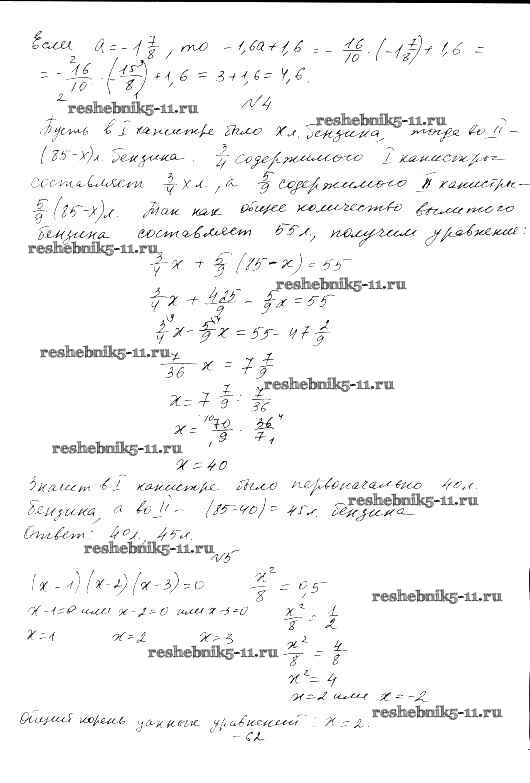 Если a = -1 7/8, то -1,6a + 1,6 = -16/10 · (-1 7/8) + 1,6 =
= -16/10 · (15/8) + 1,6 = 3 + 1,6 = 4,6.
reshebnik5-11.ru
№4
reshebnik5-11.ru
Пусть в I канистре было x л. бензина, тогда во II -
(85-x) л бензина. 3/4 содержимого I канистры
составляет 3/4 x л, а 5/9 содержимого II канистры -
5/9 (85-x) л. Так как общее количество вылитого
бензина составляет 55 л, получим уравнение:
reshebnik5-11.ru
3/4 x + 5/9 (85-x) = 55
3/4 x + 425/9 - 5/9 x = 55
reshebnik5-11.ru
3/4 x - 5/9 x = 55 - 47 2/9
reshebnik5-11.ru
7/36 x = 7 7/9
reshebnik5-11.ru
x = 7 7/9 : 7/36
x = 70/9 · 36/7
reshebnik5-11.ru
x = 40
Значит в I канистре было первоначально 40 л.
reshebnik5-11.ru
бензина, а во II - (85-40) = 45 л. бензина
Ответ: 40 л, 45 л.
reshebnik5-11.ru
№5
(x-1)(x-2)(x-3)=0 x²/8 = 0,5
reshebnik5-11.ru
x-1=0 или x-2=0 или x-3=0 x²/8 = 1/2
x=1 x=2 x=3
reshebnik5-11.ru
x²/8 = 4/8
x² = 4
x=2 или x=-2
Общий корень данных уравнений: x=2.
reshebnik5-11.ru
-62